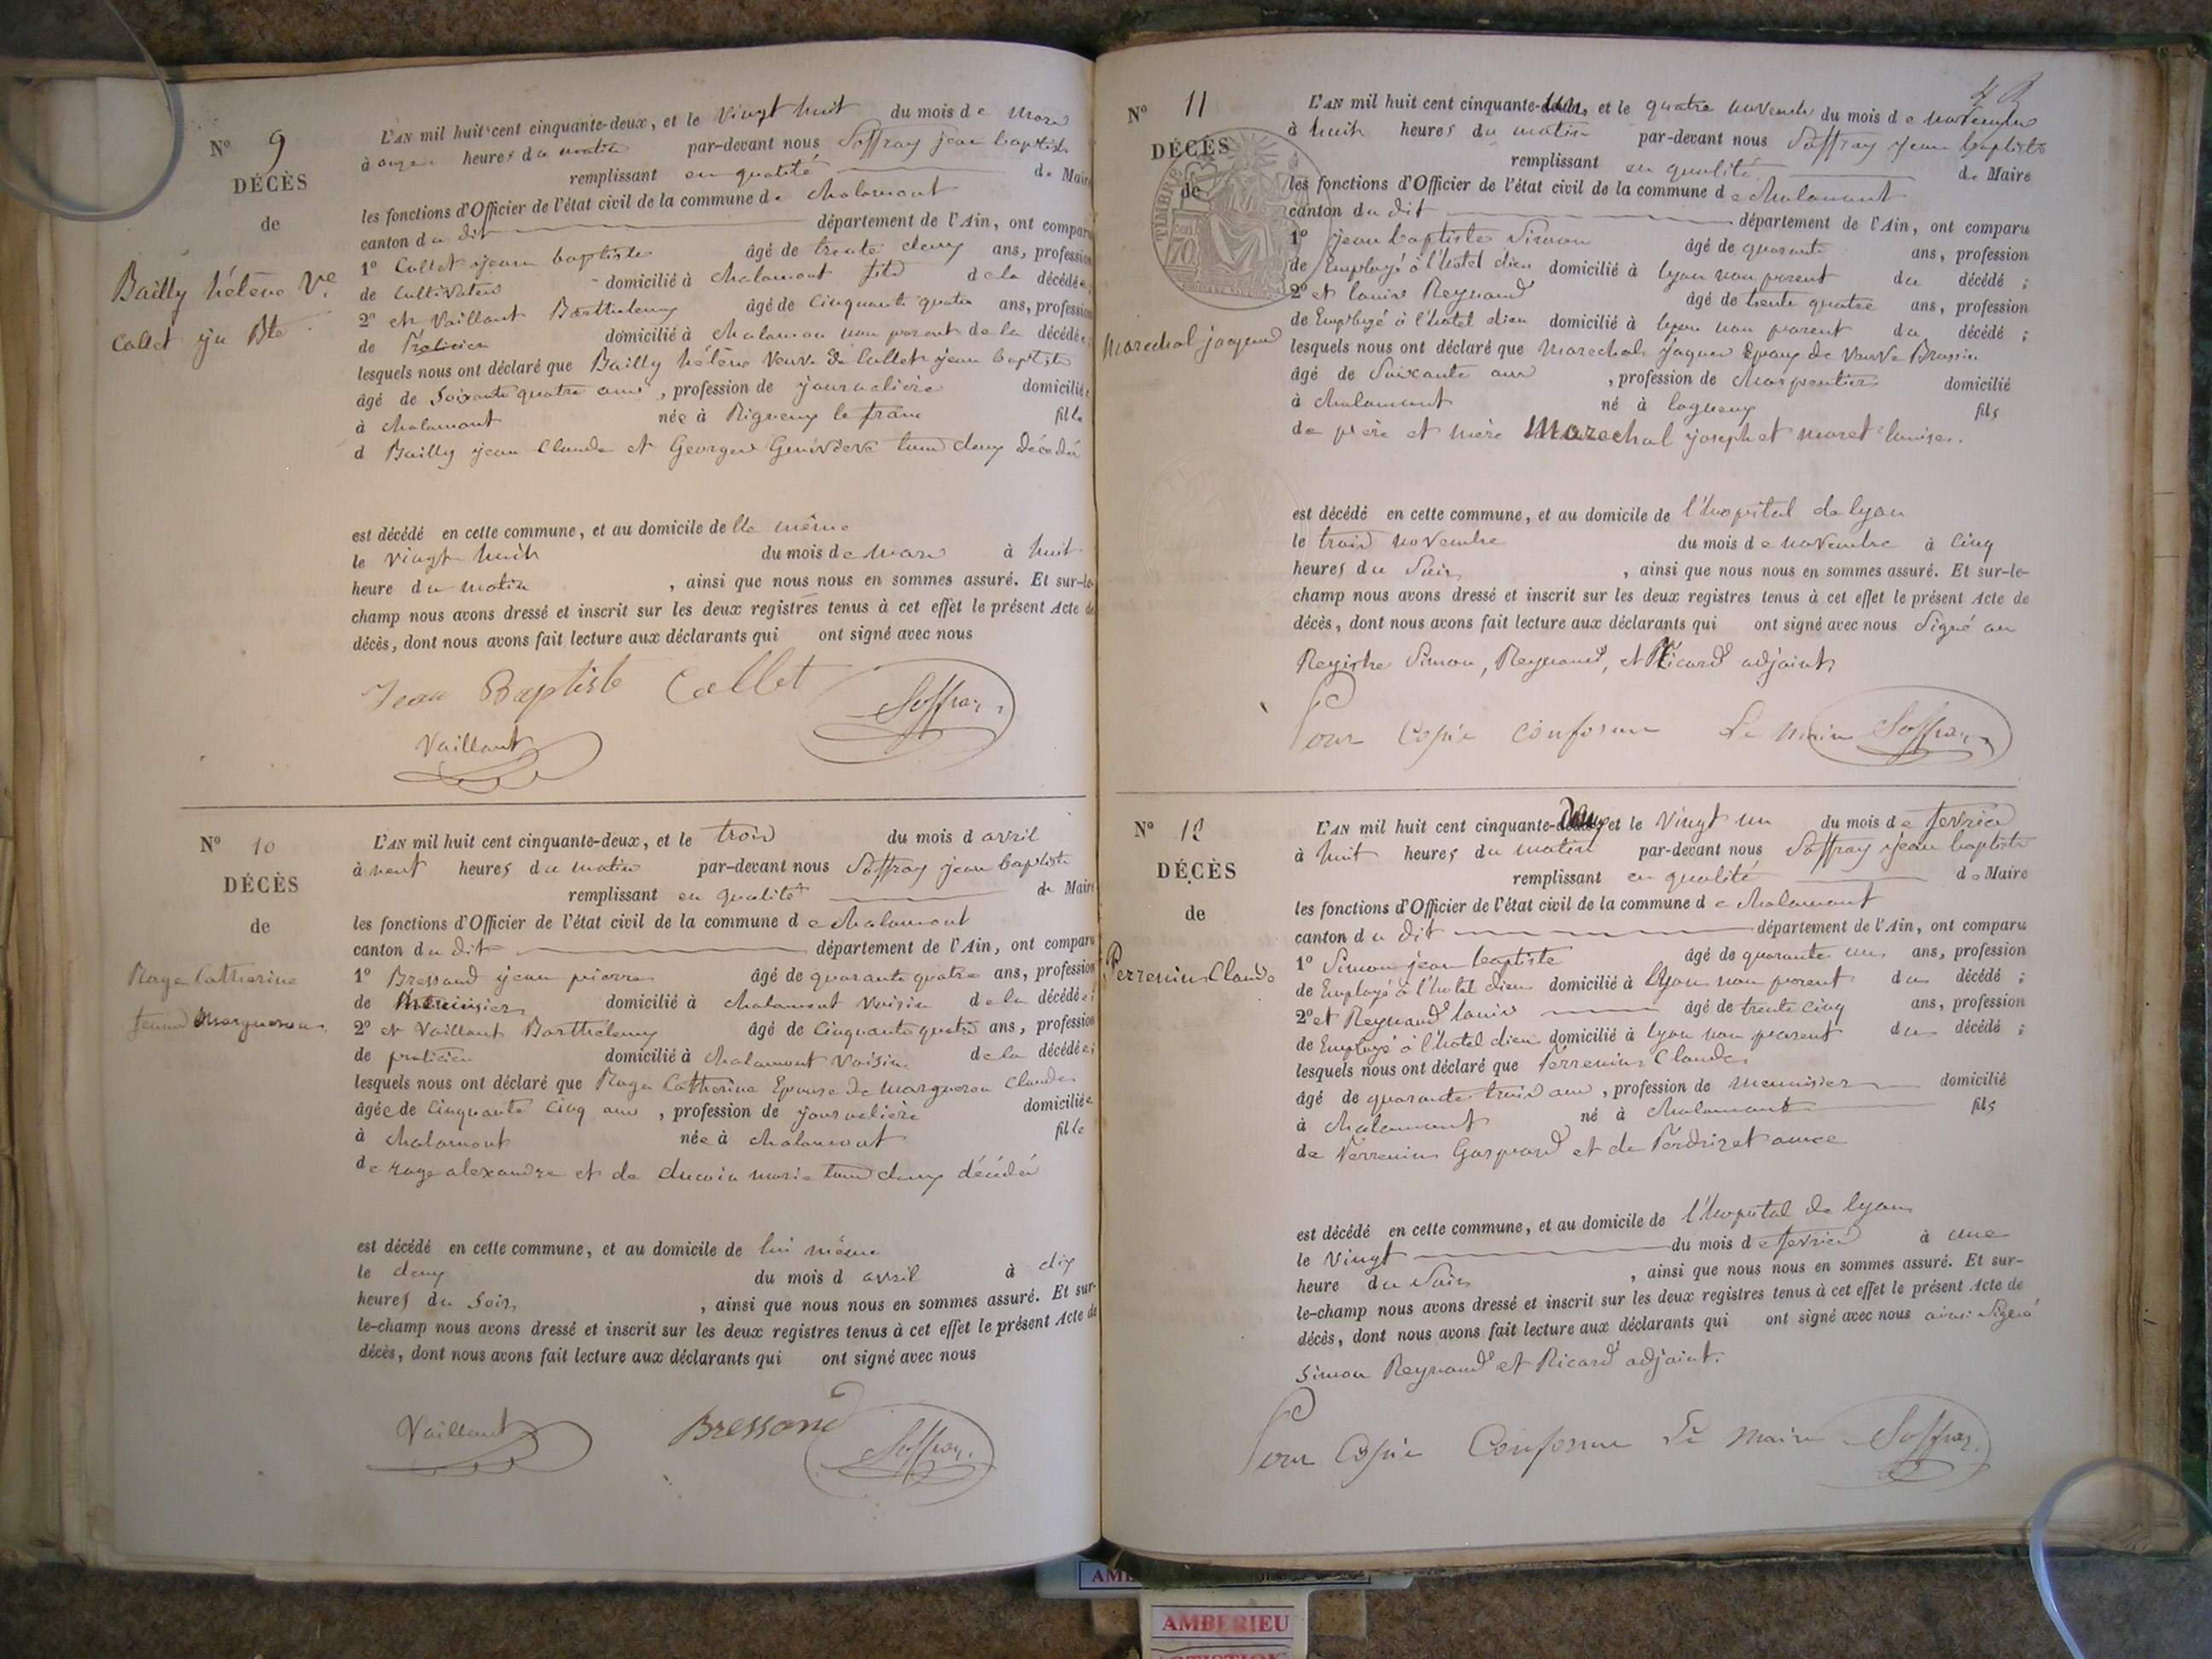 N° 9
DÉCÈS
de
Bailly hélène Ve
Collet jn Bte
L'AN mil huit cent cinquante-deux, et le vingt huit du mois de Mars
à onze heures du matin par-devant nous Soffray jean baptiste
remplissant en qualité de Maire
les fonctions d'Officier de l'état civil de la commune de chalamont
canton du dit département de l'Ain, ont comparu
1° Collet jean baptiste âgé de trente deux ans, profession
de cultivateur domicilié à chalamont fils de la décédée,
2° et Vaillant Barthelemy âgé de Cinquante quatre ans, profession
de Praticien domicilié à chalamon non parent de la décédée;
lesquels nous ont déclaré que Bailly hélène veuve de Collet jean baptiste
âgé de Soixante quatre ans, profession de journalière domiciliée
à chalamont née à Rigneux le franc fille
d Bailly jean Claude et Georges Geniviève tous deux décédés
est décédé en cette commune, et au domicile de lle même
le vingt huit du mois de Mars à huit
heure du matin, ainsi que nous nous en sommes assuré. Et sur-le-
champ nous avons dressé et inscrit sur les deux registres tenus à cet effet le présent Acte de
décès, dont nous avons fait lecture aux déclarants qui ont signé avec nous
Jean Baptiste Collet Soffray
Vaillant
N° 10
DÉCÈS
de
Rage Catherine
femme Margueron
L'AN mil huit cent cinquante-deux, et le trois du mois d avril
à neuf heures du matin par-devant nous Soffray jean baptiste
remplissant en qualité de Maire
les fonctions d'Officier de l'état civil de la commune de chalamont
canton du dit département de l'Ain, ont comparu
1° Bressand jean pierre âgé de quarante quatre ans, profession
de Menuisier domicilié à chalamont Voisin de la décédée;
2° et Vaillant Barthelemy âgé de Cinquante quatre ans, profession
de praticien domicilié à chalamont Voisin de la décédée;
lesquels nous ont déclaré que Rage Catherine Epouse de Margueron Claude
âgée de Cinquante Cinq ans, profession de journalière domiciliée
à chalamont née à chalamont fille
de rage alexandre et de ducoin marie tous deux décédés
est décédé en cette commune, et au domicile de lui même
le deux du mois d avril à dix
heures du soir, ainsi que nous nous en sommes assuré. Et sur-
le-champ nous avons dressé et inscrit sur les deux registres tenus à cet effet le présent Acte de
décès, dont nous avons fait lecture aux déclarants qui ont signé avec nous
Vaillant Bressand Soffray
N° 11
DÉCÈS
de
Marechal jaques
TIMBRE
70
L'AN mil huit cent cinquante- et le quatre novembre du mois de novembre
à huit heures du matin par-devant nous Soffray jean baptiste
remplissant en qualité de Maire
les fonctions d'Officier de l'état civil de la commune de chalamont
canton du dit département de l'Ain, ont comparu
1° jean baptiste Simon âgé de quarante ans, profession
de Employé à l'hotel dieu domicilié à lyon non parent du décédé;
2° et louis Reynaud âgé de trente quatre ans, profession
de Employé à l'hotel dieu domicilié à lyon non parent du décédé;
lesquels nous ont déclaré que Marechal jaques Epoux de Veuve Brossin
âgé de Soixante ans, profession de charpentier domicilié
à chalamont né à lagneux fils
de père et mère Marechal joseph et moret louise.
est décédé en cette commune, et au domicile de l'hopital de lyon
le trois novembre du mois de novembre à Cinq
heures du Soir, ainsi que nous nous en sommes assuré. Et sur-le-
champ nous avons dressé et inscrit sur les deux registres tenus à cet effet le présent Acte de
décès, dont nous avons fait lecture aux déclarants qui ont signé avec nous Signé au
Registre Simon, Reynaud, et Ricard adjoint
Pour Copie conforme Le Maire Soffray
N° 12
DÉCÈS
de
Perrenin Claude
L'AN mil huit cent cinquante-deux et le Vingt un du mois de fevrier
à huit heures du matin par-devant nous Soffray jean baptiste
remplissant en qualité de Maire
les fonctions d'Officier de l'état civil de la commune de chalamont
canton du dit département de l'Ain, ont comparu
1° Simon jean baptiste âgé de quarante un ans, profession
de Employé à l'hotel dieu domicilié à lyon non parent du décédé;
2° et Reynaud louis âgé de trente cinq ans, profession
de Employé à l'hotel dieu domicilié à lyon non parent du décédé;
lesquels nous ont déclaré que Perrenin Claude
âgé de quarante trois ans, profession de menuisier domicilié
à chalamont né à chalamont fils
de Perrenin Gaspard et de Perdrizet
est décédé en cette commune, et au domicile de l'hopital de lyon
le Vingt du mois de fevrier à une
heure du Soir, ainsi que nous nous en sommes assuré. Et sur-
le-champ nous avons dressé et inscrit sur les deux registres tenus à cet effet le présent Acte de
décès, dont nous avons fait lecture aux déclarants qui ont signé avec nous ainsi signé
Simon Reynaud et Ricard adjoint.
Pour Copie Conforme Le Maire Soffray
AMBERIEU